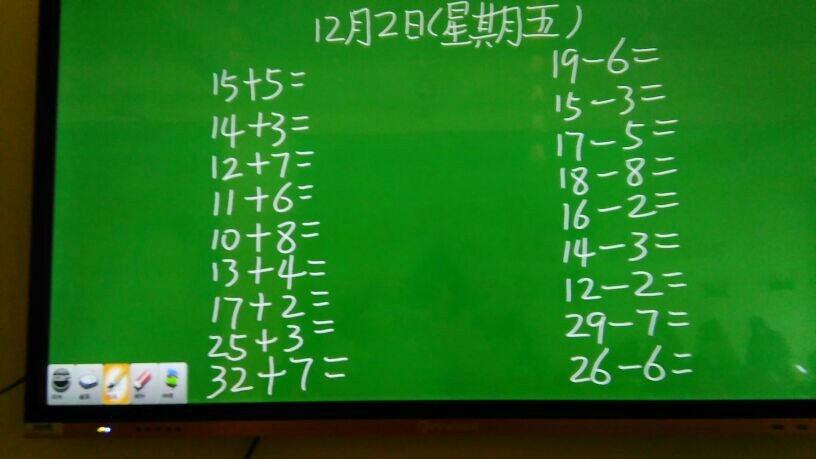 12月2日(星期五)
15+5=
14+3=
12+7=
11+6=
10+8=
13+4=
17+2=
25+3=
32+7=
19-6=
15-3=
17-5=
18-8=
16-2=
14-3=
12-2=
29-7=
26-6=